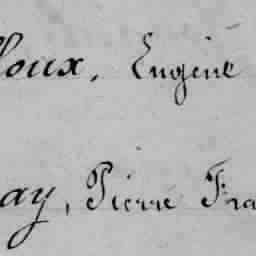 loux, Eugène
ay, Pierre Fra